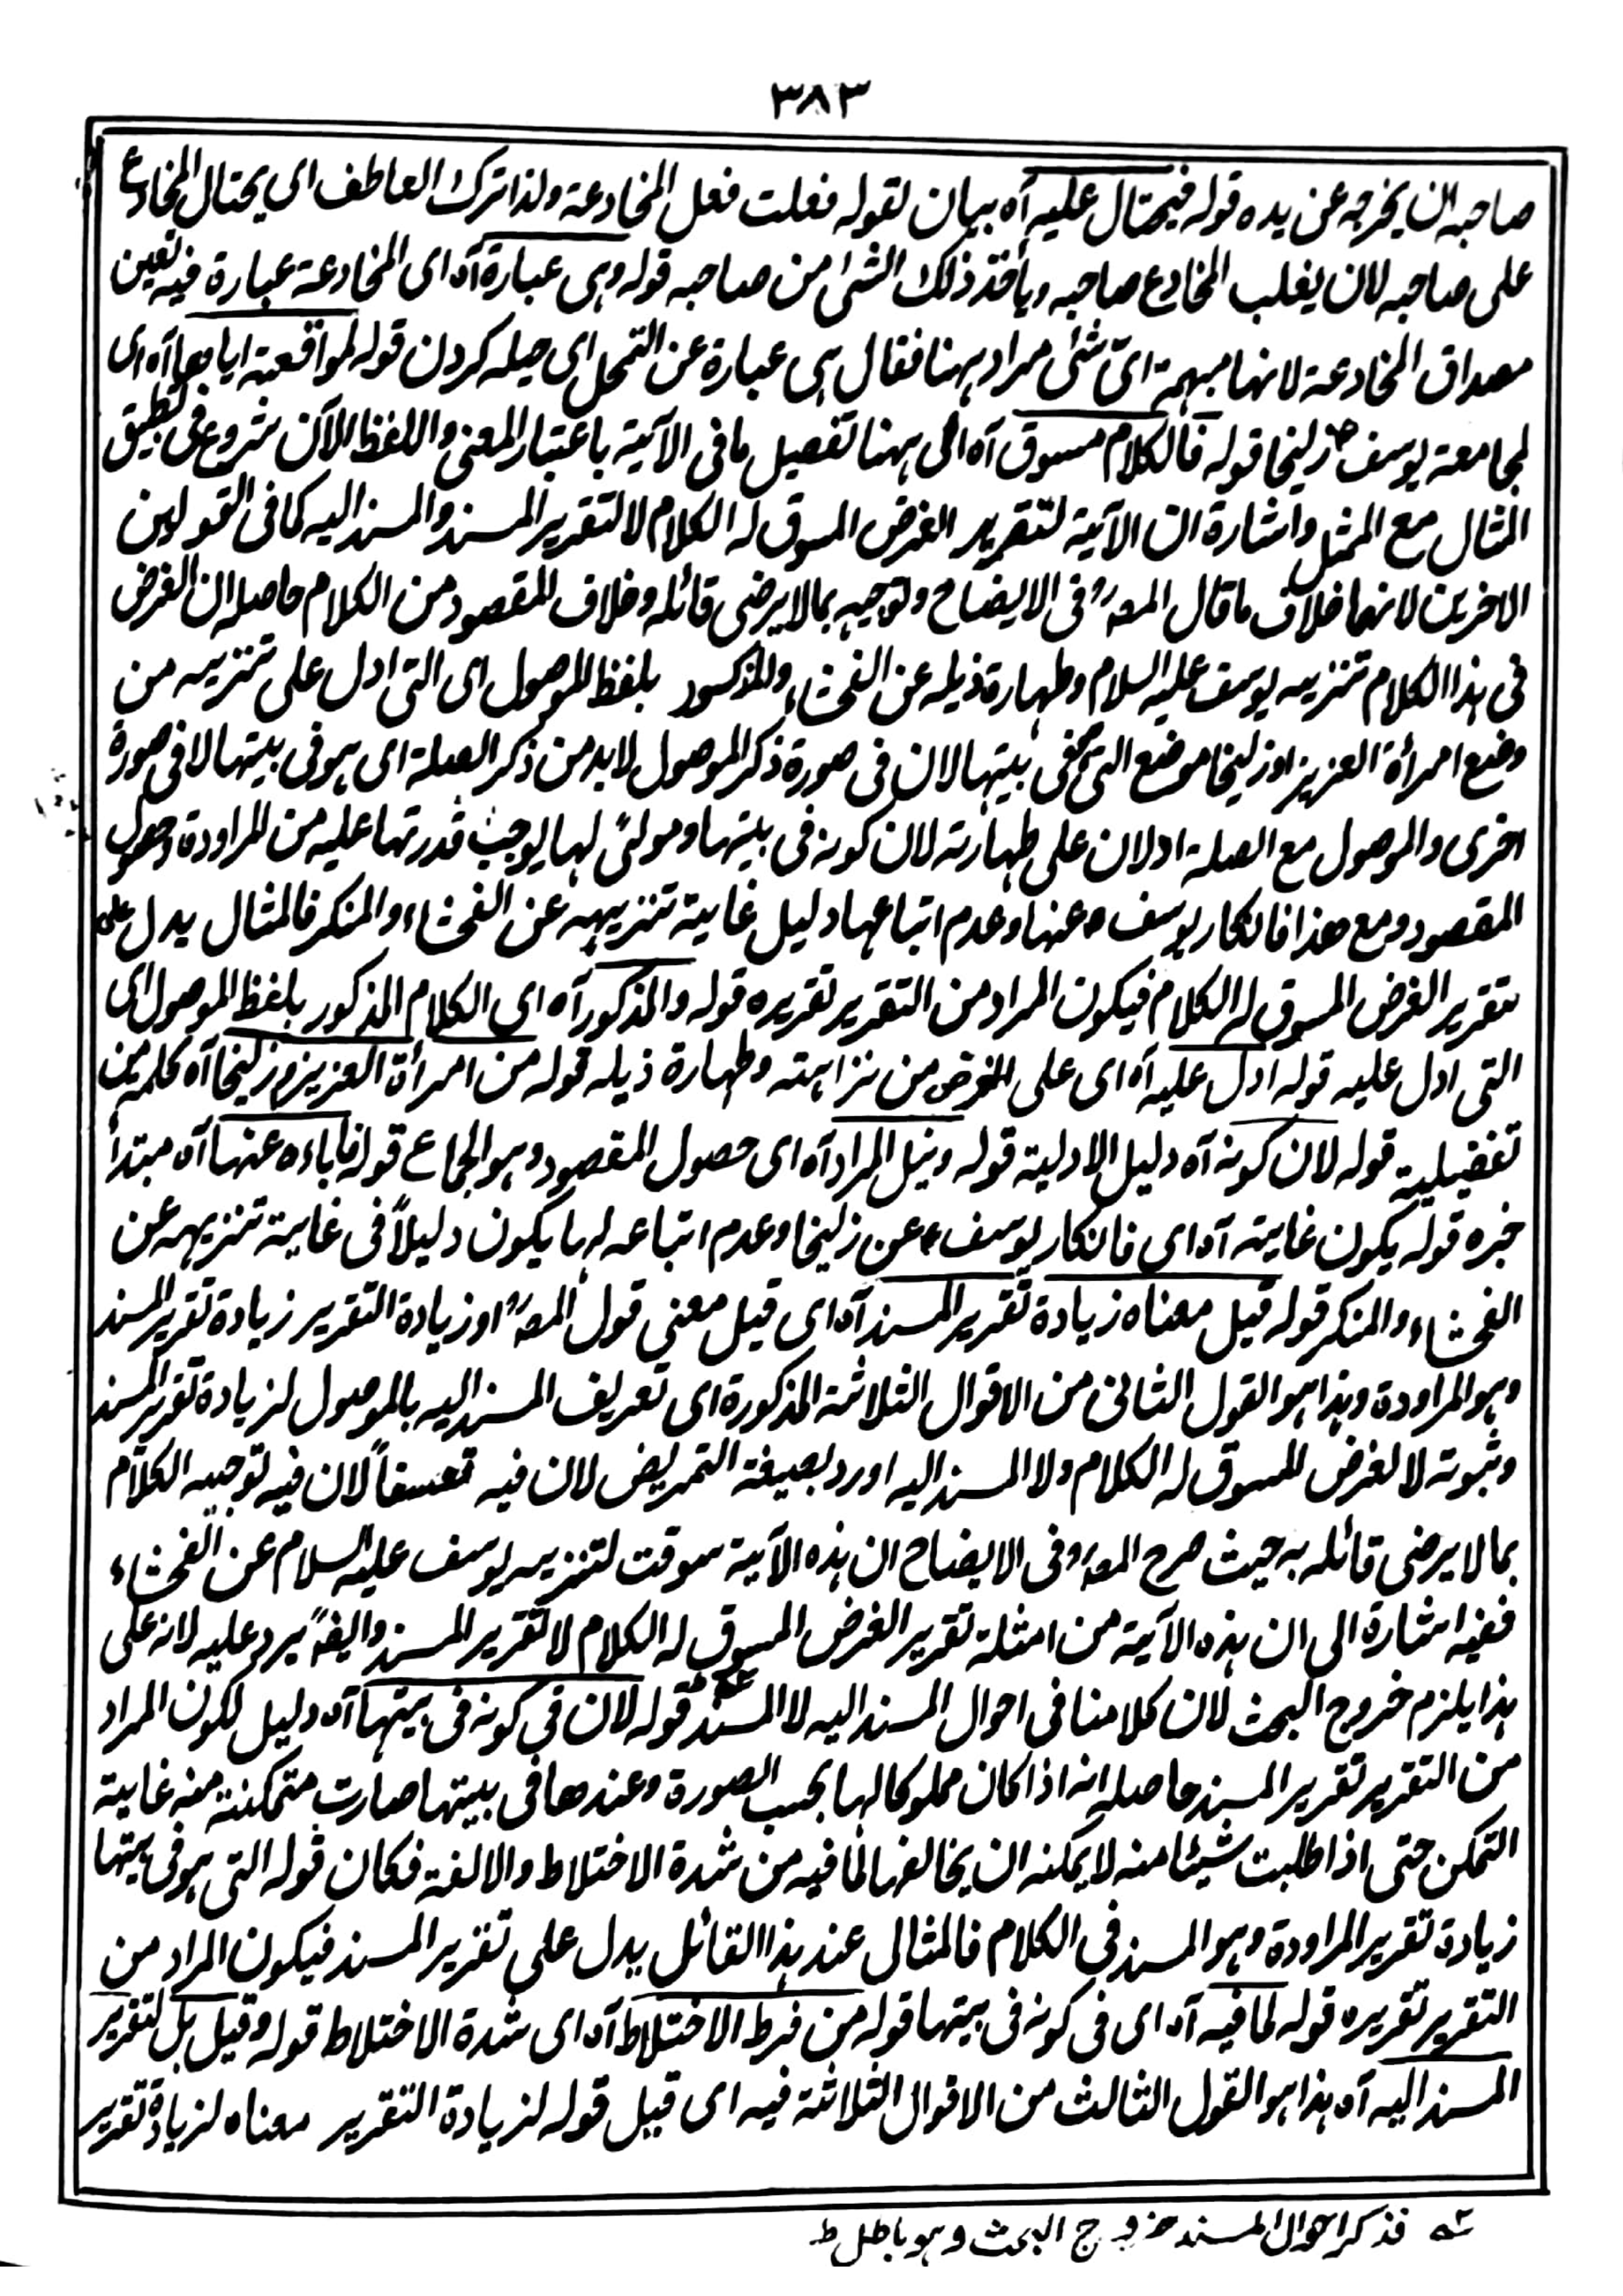 ٣٨٣
صاحبه ان يخرجه عن يده قوله فيحتال عليه آه بيان لقوله فعلت فعل المخادعة ولذا ترك العاطف اى يحتال المخادع
على صاحبه لان يغلب المخادع صاحبه ويأخذ ذلك الشئ من صاحبه قوله وهى عبارة آه اى المخادعة عبارة فيه تعين
مصداق المخادعة لانها مبهمة اىّ شئ مراد ههنا فقال هى عبارة عن التمحل اى حيله كردن قوله لمواقعته اياها آه اى
لمجامعة يوسف زليخا قوله فالكلام مسوق آه الى ههنا تفصيل ما فى الآية باعتبار المعنى واللفظ الآن شروع فى تطبيق
المثال مع الممثل واشارة ان الآية لتقرير الغرض المسوق له الكلام لا لتقرير المسند والمسند اليه كما فى القولين
الاخرين لانهما خلاف ما قال المصؒ فى الايضاح وتوجيه بما لا يرضى قائله وخلاف المقصود من الكلام حاصله ان الغرض
فى هذا الكلام تنزيه يوسف عليه السلام وطهارة ذيله عن الفحشاء والمذكور بلفظ الموصول اى التى ادل على تنزيهه من
وضع امرأة العزيز او زليخا موضع التى فى بيتها لان فى صورة ذكر الموصول لا بد من ذكر الصلة اى هو فى بيتها لا فى صورة
اخرى والموصول مع الصلة ادلان على طهارته لان كونه فى بيتها ومولىً لها يوجب قدرتها عليه من المراودة وحصول
المقصود ومع هذا فانكار يوسفؑ عنها وعدم اتباعها دليل غاية تنزيهه عن الفحشاء والمنكر فالمثال يدل على
تقرير الغرض المسوق له الكلام فيكون المراد من التقرير تقريره قوله والمذكور آه اى الكلام المذكور بلفظ الموصول اى
التى ادل عليه قوله ادل عليه آه اى على الغرض من نزاهته وطهارة ذيله قوله من امرأة العزيز وزليخا آه كلمة من
تفضيلية قوله لان كونه آه دليل الادلية قوله ونيل المراد آه اى حصول المقصود وهو الجماع قوله فاباءه عنها آه مبتدأ
خبره قوله يكون غاية آه اى فانكار يوسفؑ عن زليخا وعدم اتباعه لها يكون دليلاً فى غاية تنزيهه عن
الفحشاء والمنكر قوله قيل معناه زيادة تقرير المسند آه اى قيل معنى قول المصؒ او زيادة التقرير زيادة تقرير المسند
وهو المراودة وهذا هو القول الثانى من الاقوال الثلاثة المذكورة اى تعريف المسند اليه بالموصول لزيادة تقرير المسند
وثبوته لا لغرض المسوق له الكلام ولا المسند اليه اورد بصيغة التمريض لان فيه تعسفاً لان فيه توجيه الكلام
بما لا يرضى قائله به حيث صرح المصؒ فى الايضاح ان هذه الآية سوقت لتنزيه يوسف عليه السلام عن الفحشاء
ففيه اشارة الى ان هذه الآية من امثلة تقرير الغرض المسوق له الكلام لا تقرير المسند وايضًا يرد عليه لانه على
هذا يلزم خروج البحث لان كلامنا فى احوال المسند اليه لا المسند قوله لان فى كونه فى بيتها آه دليل لكون المراد
من التقرير تقرير المسند حاصله انه اذا كان مملوكا لها بحسب الصورة وعندها فى بيتها صارت متمكنة منه غاية
التمكن حتى اذا طلبت شيئا منه لا يمكنه ان يخالفها لما فيه من شدة الاختلاط والالفة فكان قوله التى هو فى بيتها
زيادة تقرير المراودة وهو المسند فى الكلام فالمثال عند هذا القائل يدل على تقرير المسند فيكون المراد من
التقرير تقريره قوله لما فيه آه اى فى كونه فى بيتها قوله من فرط الاختلاط آه اى شدة الاختلاط قوله وقيل بل لتقرير
المسند اليه آه هذا هو القول الثالث من الاقوال الثلاثة فيه اى قيل قوله لزيادة التقرير معناه لزيادة تقرير
فذكر احوال المسند خروج البحث وهو باطل ط